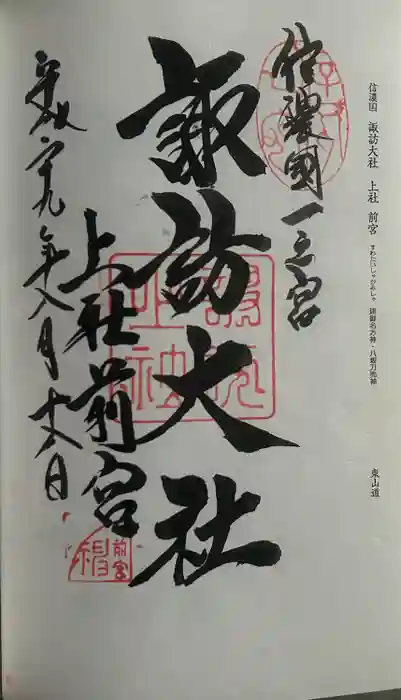 信濃国 諏訪大社 上社 前宮 すわたいしゃかみしゃ 建御名方神・八坂刀売神 東山道
信濃國一之宮
諏訪大社
上社前宮
平成二十九年八月十六日
前宮